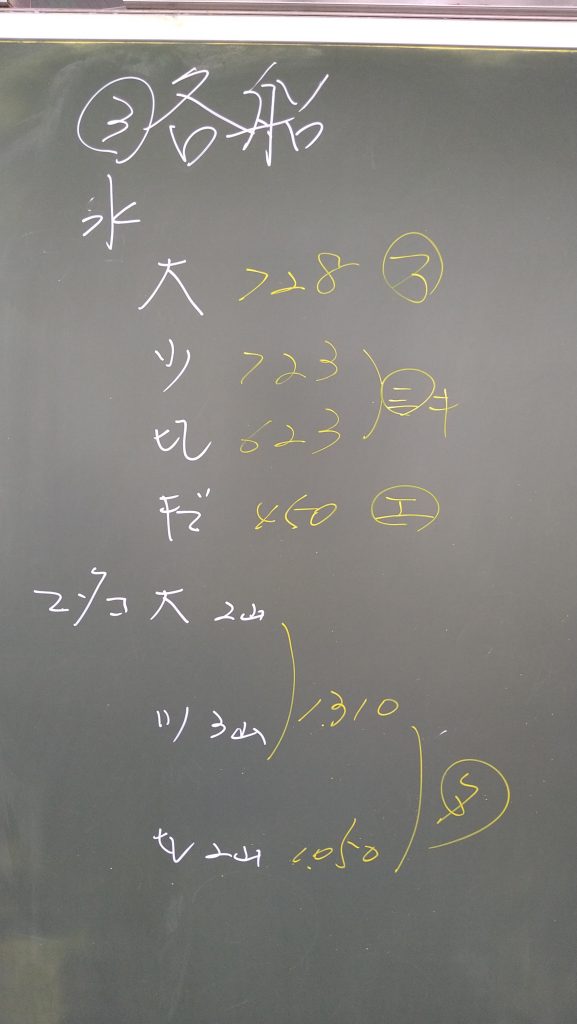 ③各船
氷
大 728 ㋐
ツ 723
切 623 ㊂キ
下 450 ㋓
マジコ 大 2山
ツ 3山 1.310
切 2山 1.050